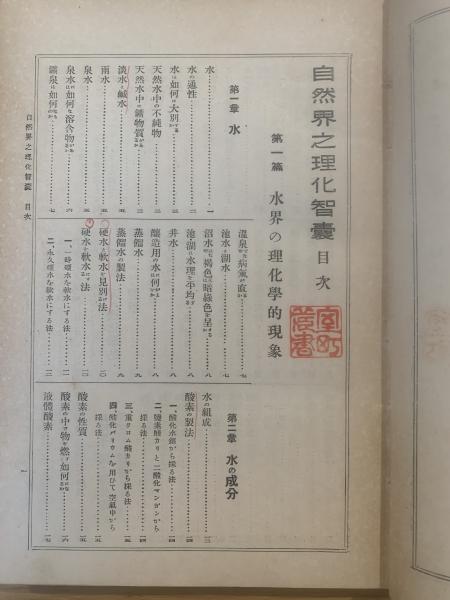 自然界之理化智嚢 目次
第一篇 水界の理化學的現象
第一章 水
水……一
水の通性……二
水は如何に大別
天然水中の不純物
天然水中の鑛物質
淡水と鹹水
雨水
泉水……五
泉水は如何な溶含物……六
鑛泉は如何……七
温泉で病氣が直る……七
池水と湖水……七
沼水は褐色又は暗綠色を呈す……八
池湖は水理を平均す……八
井水……八
釀造用の水は何……八
蒸餾水……九
蒸餾水の製法……九
硬水と軟水を見別ける法……一〇
硬水を軟水にする法……一〇
一、一時硬水を軟水にする法……一一
二、永久硬水を軟水にする法……一二
第二章 水の成分
水の組成……一三
酸素の製法……一四
一、酸化水銀から採る法……一四
二、鹽素酸カリと二酸化マンガンから採る法……一四
三、重クロム酸カリから採る法……一五
四、酸化バリウムを用ひて空氣中から採る法……一五
酸素の性質……一五
酸素の中で物を燃す如何……一六
液體酸素……一七
自然界之理化智嚢 目次
一